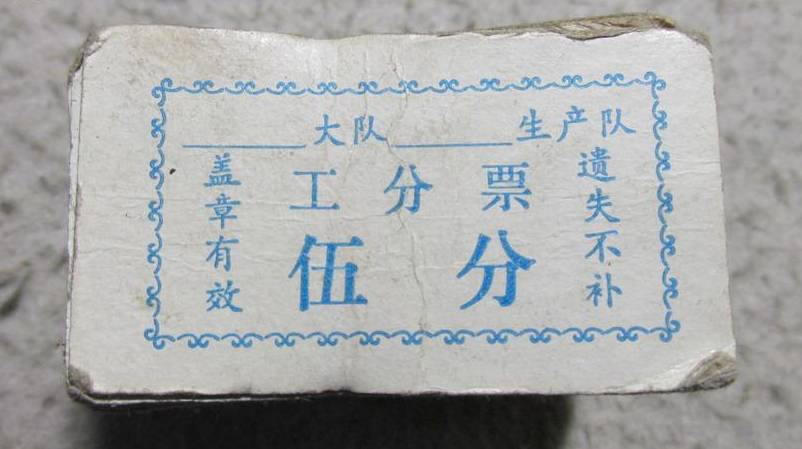 ______大队______生产队
工分票
伍分
盖章有效
遗失不补